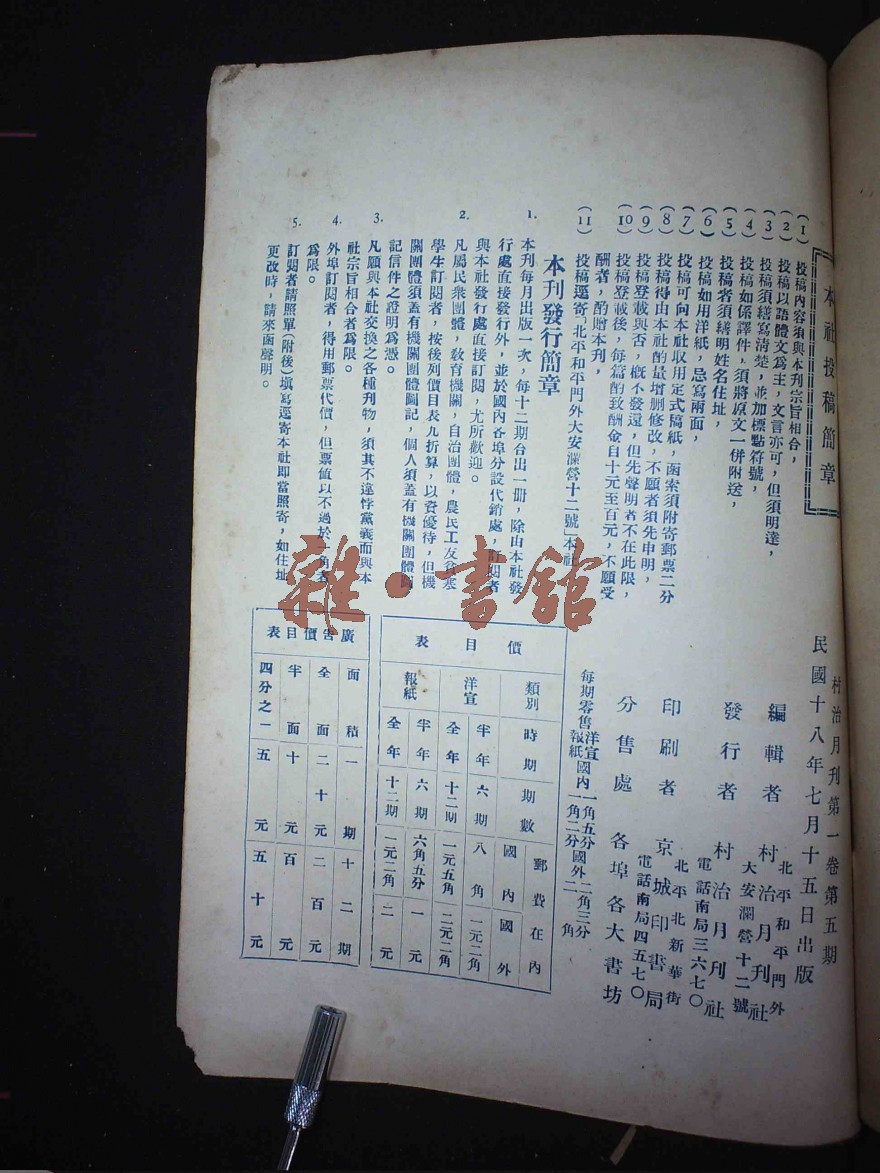 本社投稿簡章
(1) 投稿內容須與本刊宗旨相合，
(2) 投稿以語體文爲主，文言亦可，但須明達，
(3) 投稿須繕寫清楚，並加標點符號，
(4) 投稿如係譯件，須將原文一併附送，
(5) 投稿者須繕明姓名住址，
(6) 投稿如用洋紙，忌寫兩面，
(7) 投稿可向本社取用定式稿紙，函索須附寄郵票二分
(8) 投稿得由本社酌量增删修改，不願者須先申明，
(9) 投稿登載與否，槪不發還，但先聲明者不在此限，
(10) 投稿登載後，每篇酌致酬金自十元至百元，不願受
酬者，酌贈本刊，
(11) 投稿逕寄，北平和平門外大安瀾營十二號」本社
本刊發行簡章
1. 本刊每月出版一次，每十二期合出一册，除由本社發
行處直接發行外，並於國內各埠分設代銷處，訂閱者
與本社發行處直接訂閱，尤所歡迎。
2. 凡屬民衆團體，敎育機關，自治團體，農民工友貧寒
學生訂閱者，按後列價目表九折算，以資優待，但機
關團體須蓋有機關團體圖記，個人須蓋有機關團體圖
記信件之證明爲憑。
3. 凡願與本社交換之各種刊物，須其不違悖黨義而與本
社宗旨相合者爲限。
4. 外埠訂閱者，得用郵票代價，但票値以不過於一角者
爲限。
5. 訂閱者請照單(附後)塡寫逕寄本社即當照寄，如住址
更改時，請來函聲明。
村治月刊第一卷第五期
民國十八年七月十五日出版
編輯者 村治月刊社
北平和平門外
大安瀾營十二號
發行者 村治月刊社
電話南局三六七〇
印刷者 京城印書局
北平北新華街
電話南局四五七〇
分售處 各埠各大書坊
每期零售洋宣國內一角五分國外二角三分
報紙 一角二分 二角
價目表
類別 時期 期數 郵費在內
國內 國外
洋宣 半年 六期 八角 一元二角
全年 十二期 一元五角 二元二角
報紙 半年 六期 六角五分 一元
全年 十二期 一元二角 二元
廣告價目表
面積 一期 十二期
全面 二十元 二百元
半面 十元 百元
四分之一 五元 五十元
雜·書館